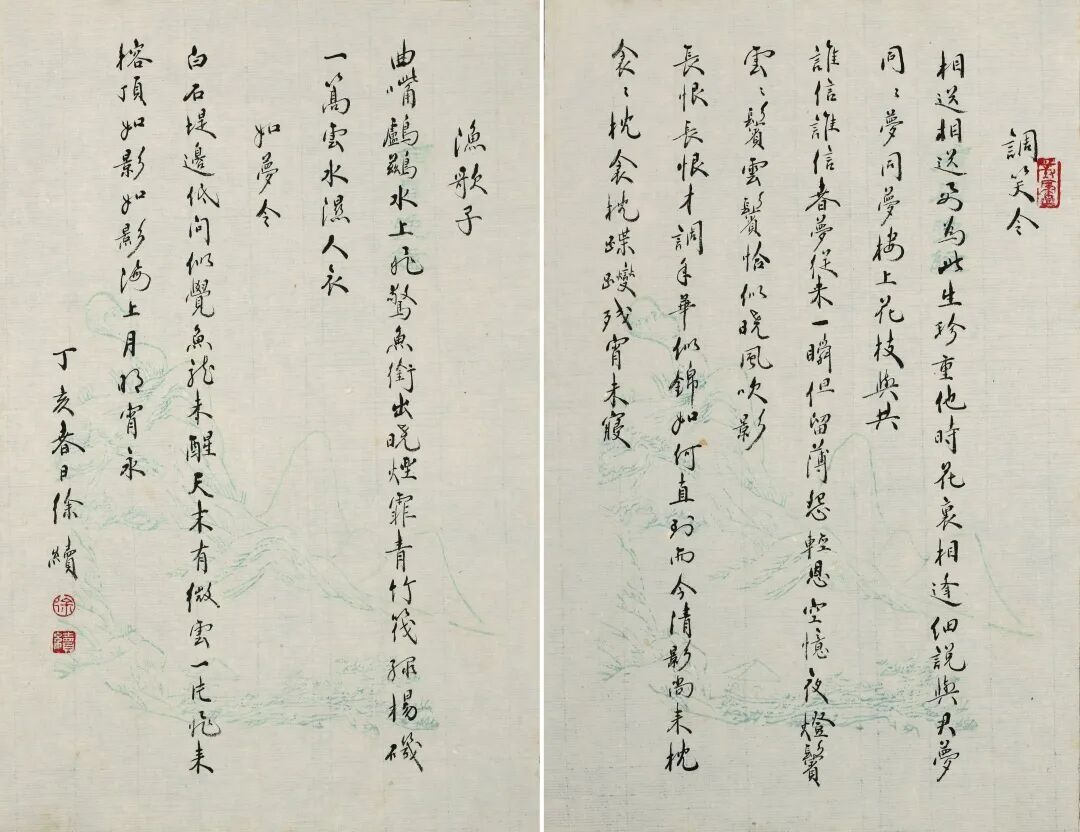 調笑令
相送相送為此生珍重他時花裏相逢細說與君夢
同〻夢同夢樓上花枝與共
誰信誰信春夢從來一瞬但留薄怨輕恩空憶夜燈鬢
雲〻鬢雲鬢恰似曉風吹影
長恨長恨才調年華似錦如何直到而今清影尚來枕
衾〻枕衾枕蝶殘宵未寢
漁歌子
曲嘴鸕鷀水上飛驚魚銜出曉煙霏青竹筏綠楊磯
一篙雲水濕人衣
如夢令
白石堤邊低問似覺魚龍未醒天末有微雲一片飛來
榕頂如影如影海上月明宵永
丁亥春日徐續
徐
續